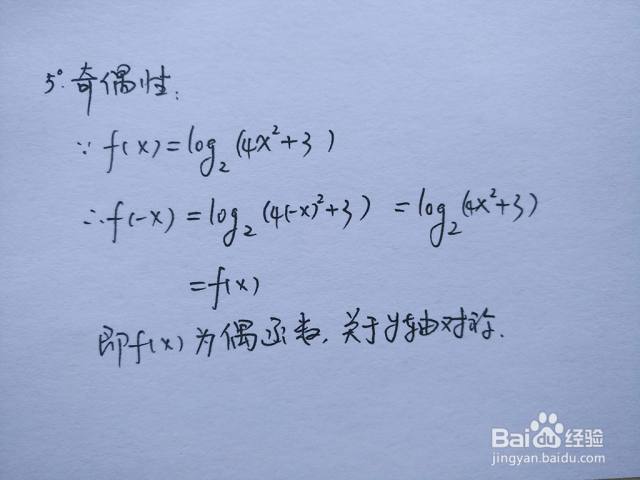 5°.奇偶性:
∵ f(x)=log₂(4x²+3)
∴f(-x)=log₂(4(-x)²+3) =log₂(4x²+3)
=f(x)
即f(x)为偶函数,关于y轴对称.
Baidu经验
jingyan.baidu.com